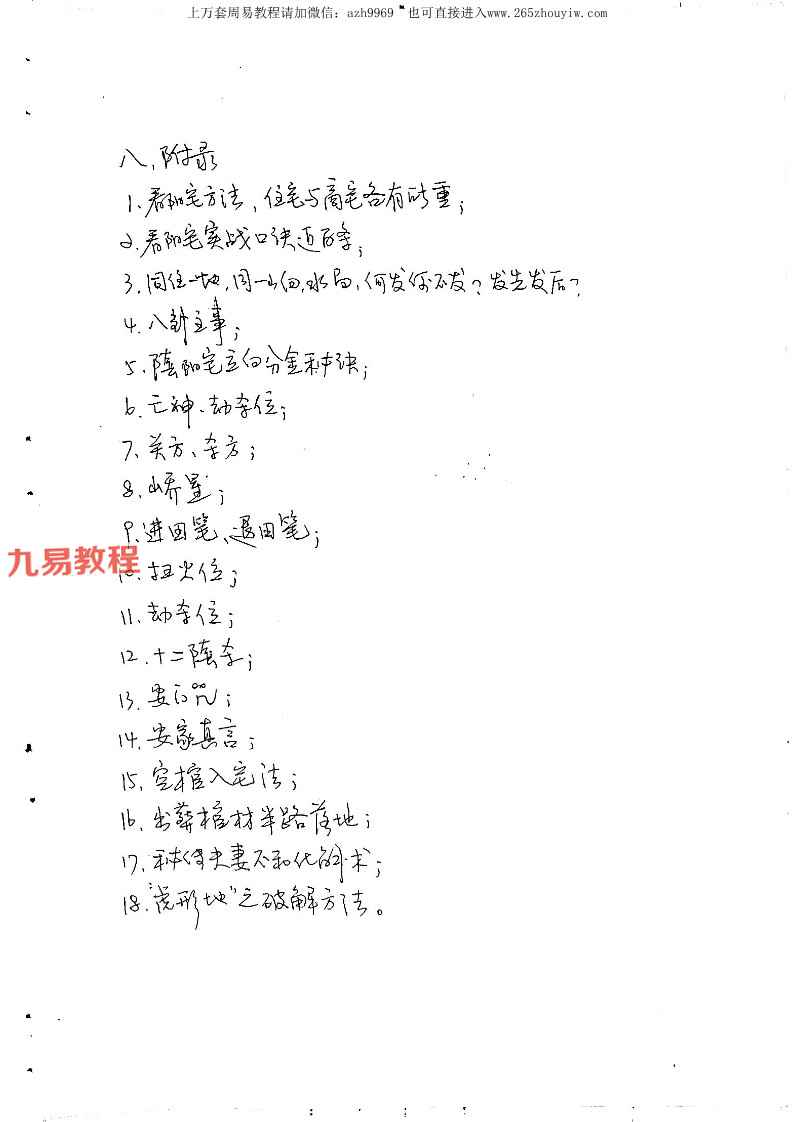 上万套周易教程请加微信：azh9969 也可直接进入www.265zhouyiw.com
八、附录
1、看阳宅方法，住宅与商宅各有所重；
2、看阳宅实战口诀近百条；
3、同住一地，同一山向，水局，何发何不发？发先发后？
4、八卦主事；
5、陰阳宅立向分金秘诀；
6、亡神、劫杀位；
7、关方、杀方；
8、山乔星；
9、进田笔、退田笔；
九易教程
10、扭火位；
11、劫杀位；
12、十二陰杀；
13、安 咒；
14、安家真言；
15、空棺入宅法；
16、出葬棺材半路落地；
17、秘传夫妻不和化的术；
18、"虎形地"之破解方法。